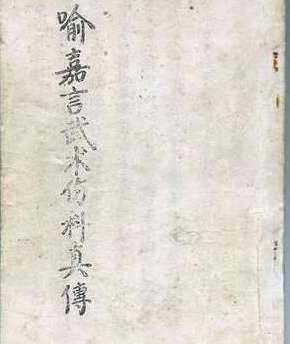 喻嘉言武术伤科真傳